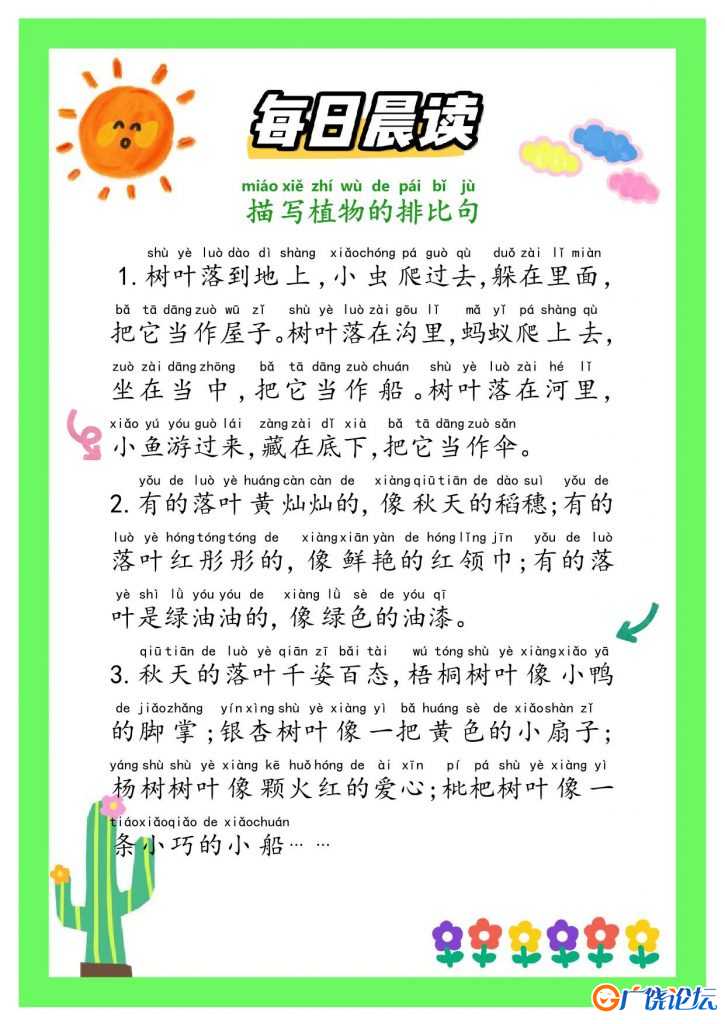 每日晨读
miáo xiě zhí wù de pái bǐ jù
描写植物的排比句
shù yè luò dào dì shàng xiǎochóng pá guò qù duǒ zài lǐ miàn
1.树叶落到地上,小虫爬过去,躲在里面,
bǎ tā dāng zuò wū zǐ shù yè luò zài gōu lǐ mǎ yǐ pá shàng qù
把它当作屋子。树叶落在沟里,蚂蚁爬上去,
zuò zài dāng zhōng bǎ tā dāng zuò chuán shù yè luò zài hé lǐ
坐在当中,把它当作船。树叶落在河里,
xiǎo yú yóu guò lái zàng zài dǐ xià bǎ tā dāng zuò sǎn
小鱼游过来,藏在底下,把它当作伞。
yǒu de luò yè huáng càn càn de xiàng qiū tiān de dào suì yǒu de
2.有的落叶黄灿灿的,像秋天的稻穗;有的
luò yè hóng tóng tóng de xiàng xiān yàn de hóng lǐng jīn yǒu de luò
落叶红彤彤的,像鲜艳的红领巾;有的落
yè shì lǜ yóu yóu de xiàng lǜ sè de yóu qī
叶是绿油油的,像绿色的油漆。
qiū tiān de luò yè qiān zī bǎi tài wú tóng shù yè xiàng xiǎo yā
3.秋天的落叶千姿百态,梧桐树叶像小鸭
de jiǎo zhǎng yín xìng shù yè xiàng yì bǎ huáng sè de xiǎo shàn zǐ
的脚掌;银杏树叶像一把黄色的小扇子;
yáng shù shù yè xiàng kē huǒ hóng de ài xīn pí pá shù yè xiàng yì
杨树树叶像颗火红的爱心;枇杷树叶像一
tiáo xiǎo qiǎo de xiǎo chuán
条小巧的小船……
广饶论坛